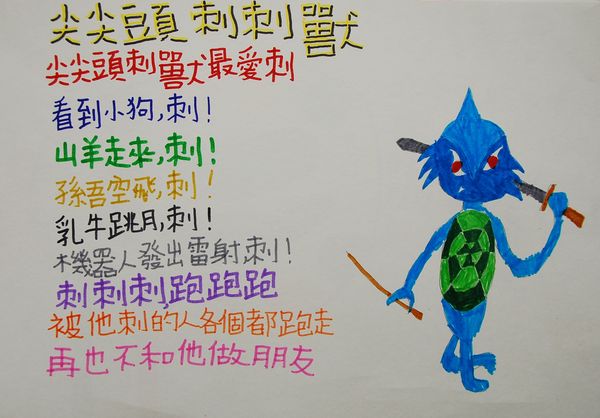 尖尖頭刺刺獸
尖尖頭刺獸最愛刺
看到小狗,刺!
山羊走來,刺!
孫悟空飛,刺!
乳牛跳月,刺!
機器人發出雷射,刺!
刺刺刺,跑跑跑
被他刺的人各個都跑走
再也不和他做朋友